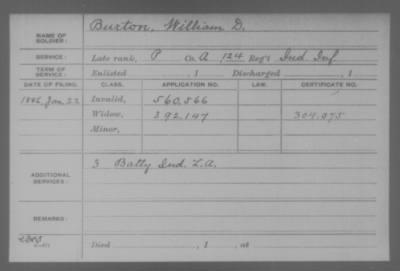 NAME OF SOLDIER: Burton, William D.
SERVICE: Late rank, P Co. A 124 Reg't Ind Inf
TERM OF SERVICE: Enlisted , 1 Discharged , 1
DATE OF FILING. CLASS. APPLICATION NO. LAW. CERTIFICATE NO.
1886, Jan. 22 Invalid, 560.566
Widow, 392.147 304.975
Minor,
ADDITIONAL SERVICES: 3 Batty Ind. L.A.
REMARKS:
Died , 1 , at